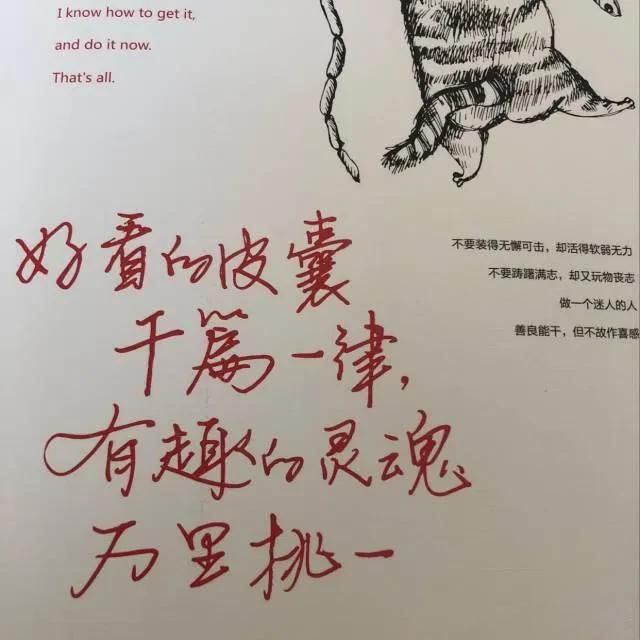 I know how to get it,
and do it now.
That's all.
不要装得无懈可击，却活得软弱无力
不要踌躇满志，却又玩物丧志
做一个迷人的人
善良能干，但不故作喜感
好看的皮囊
千篇一律，
有趣的灵魂
万里挑一